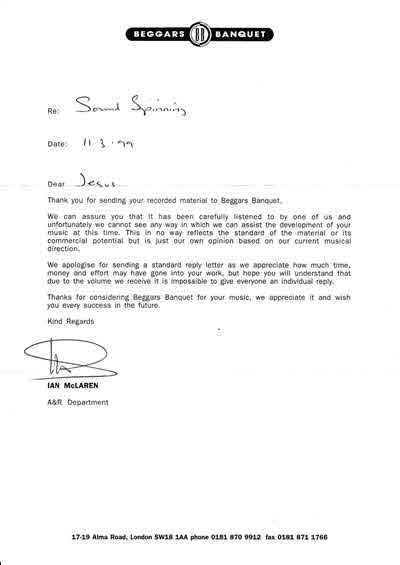 BEGGARS BB BANQUET
Re: Sound Spinning
Date: 11·3·99
Dear Jesus
Thank you for sending your recorded material to Beggars Banquet.
We can assure you that it has been carefully listened to by one of us and
unfortunately we cannot see any way in which we can assist the development of your
music at this time. This in no way reflects the standard of the material or its
commercial potential but is just our own opinion based on our current musical
direction.
We apologise for sending a standard reply letter as we appreciate how much time,
money and effort may have gone into your work, but hope you will understand that
due to the volume we receive it is impossible to give everyone an individual reply.
Thanks for considering Beggars Banquet for your music, we appreciate it and wish
you every success in the future.
Kind Regards
IAN McLAREN
A&R Department
17-19 Alma Road, London SW18 1AA phone 0181 870 9912 fax 0181 871 1766